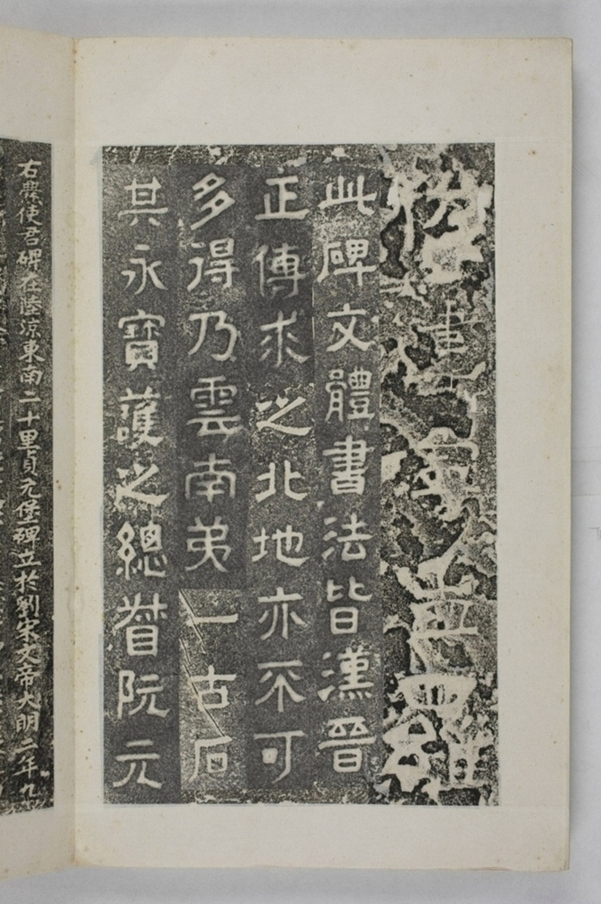 建寧孟羅
此碑文體書法皆漢晉
正傳求之北地亦不可
多得乃雲南弟一古石
其永寶護之總督阮元
右爨使君碑在陸涼東南二十里貞元堡碑立於劉宋文帝大明二年九